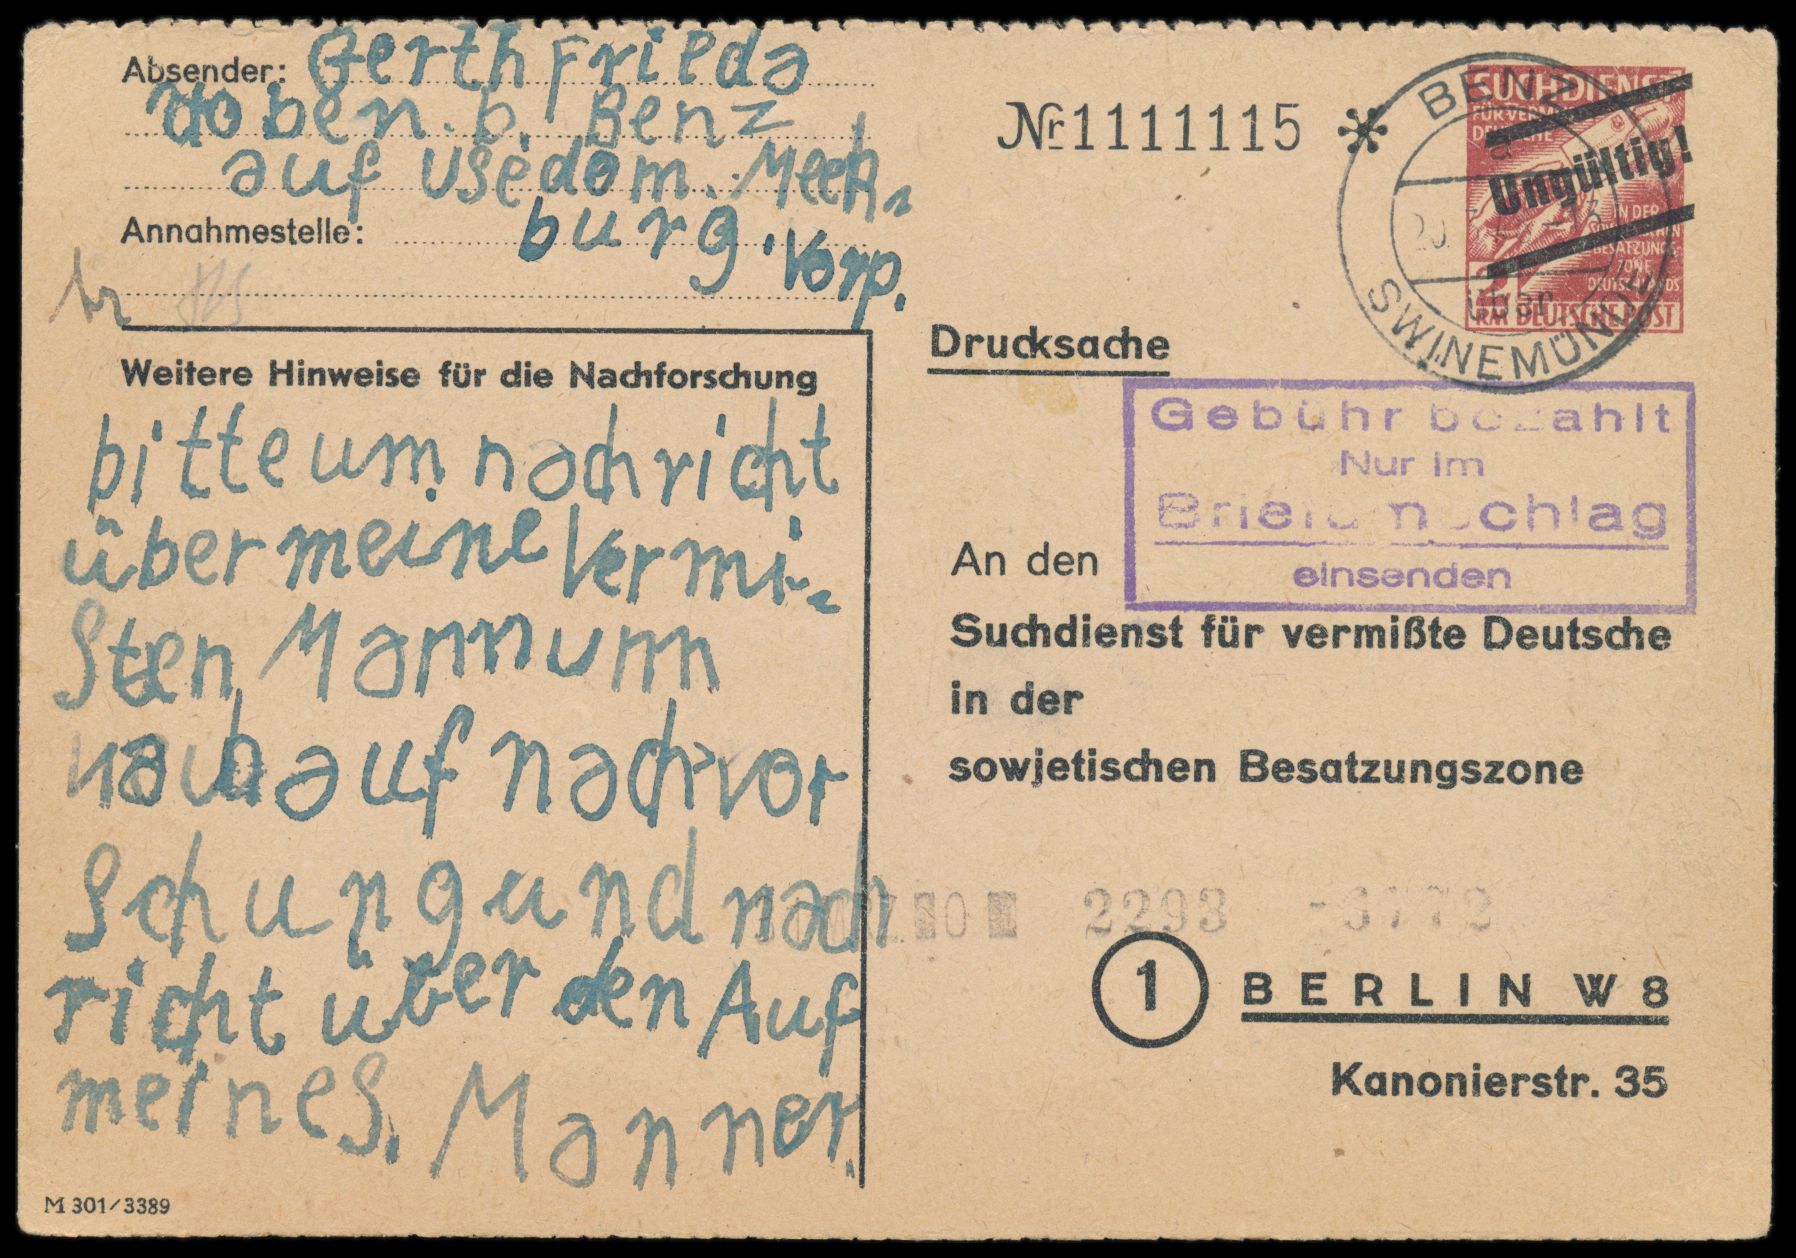 Absender: Gerth Frieda
Hoben. b. Benz
auf Usedom. Meck,
Annahmestelle: burg. Vorp.
Weitere Hinweise für die Nachforschung
bitte um nachricht
über meine Vermi-
Sten Mann um
auf nach vor
Schung und nach
richt über den Auf
meines. Manner.
M 301/3389
Nr 1111115 *
SUCHDIENST
FÜR VER
DEUTSCHE
IN DER
BESATZUNGS-
ZONE
DEUTSCHLANDS
RM DEUTSCHE POST
Ungültig!
BENZ
a
über
SWINEMÜNDE
Drucksache
Gebühr bezahlt
Nur im
Briefumschlag
einsenden
An den
Suchdienst für vermißte Deutsche
in der
sowjetischen Besatzungszone
2293 -6772
1 BERLIN W 8
Kanonierstr. 35